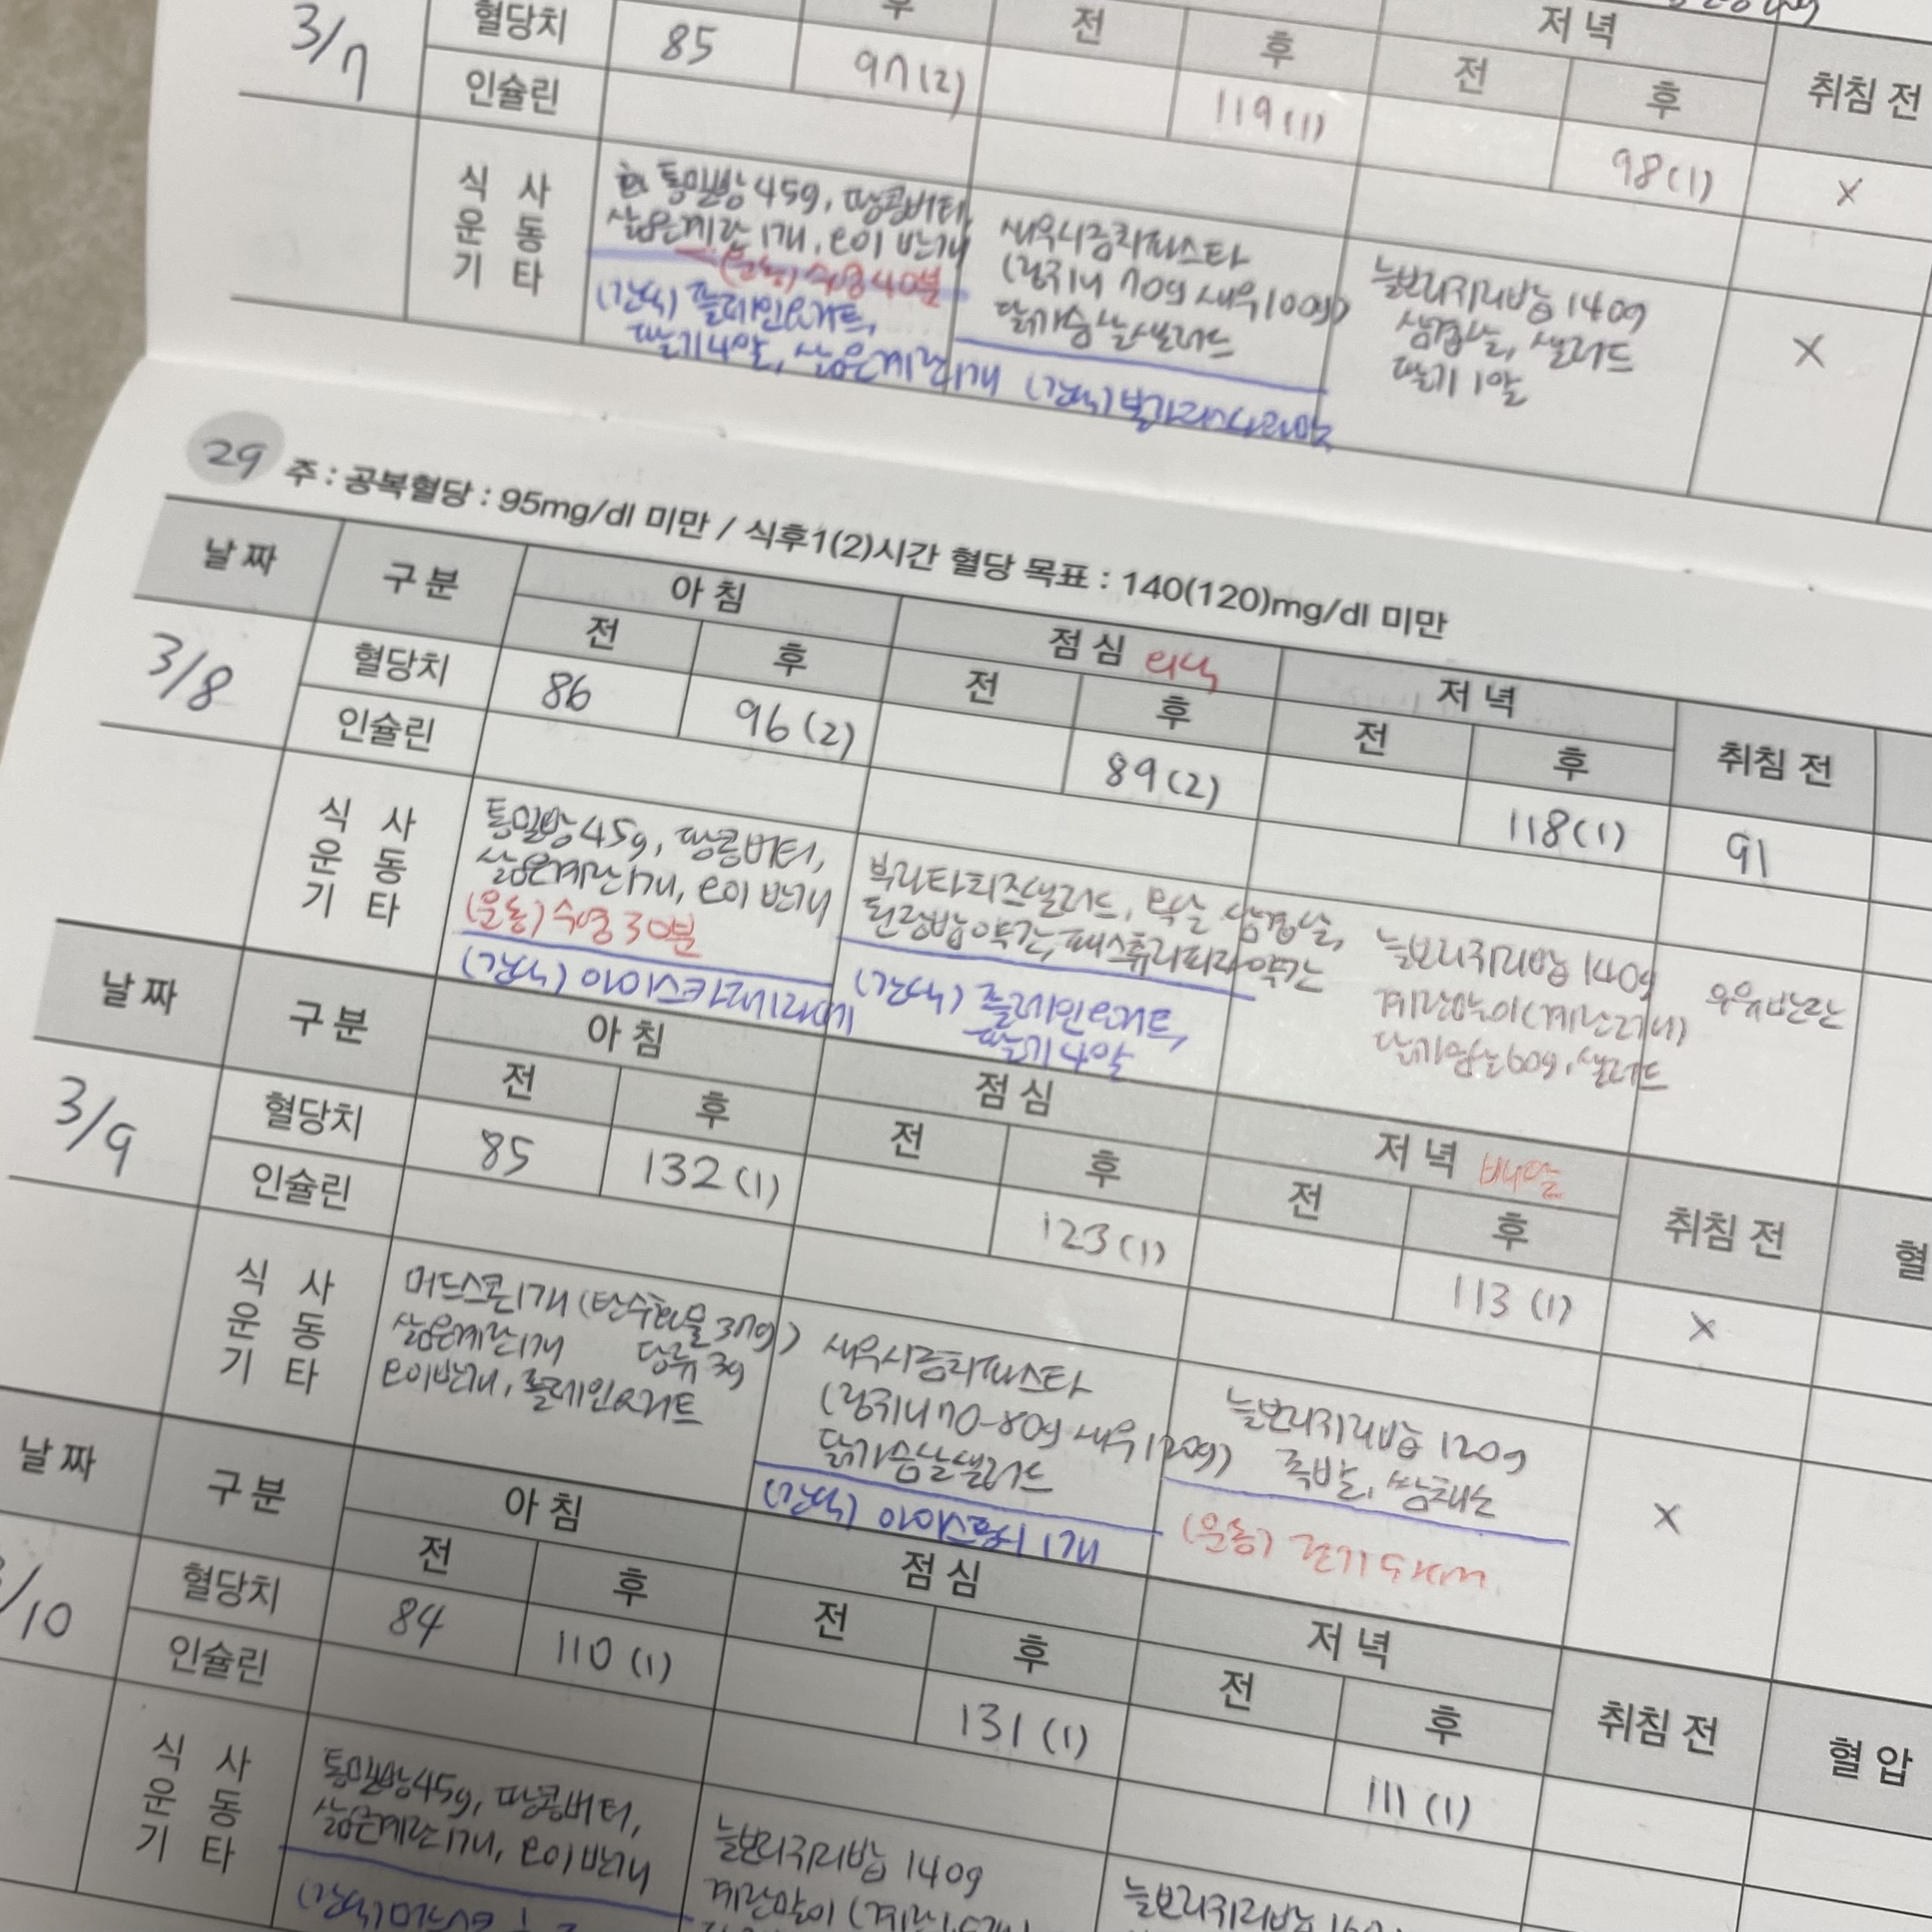 저 녁
후 전 후 전 후 취침 전
3/7 혈당치 85 97(2) 119(1) 98(1) X
인슐린
식 사
운 동
기 타
통밀빵45g, 땅콩버터,
삶은계란1개, 오이 반개
(운동) 수영40분
(간식) 플레인요거트,
딸기4알, 삶은계란1개
새우시금치파스타
(링귀니 70g 새우100g)
닭가슴살샐러드
(간식)
늘보리귀리밥140g
삼겹살, 샐러드
딸기1알
X
29 주 : 공복혈당 : 95mg/dl 미만 / 식후1(2)시간 혈당 목표 : 140(120)mg/dl 미만
날 짜 구 분 아 침 점 심 외식 저 녁 취침 전
전 후 전 후 전 후
3/8 혈당치 86 96(2) 89(2) 118(1) 91
인슐린
식 사
운 동
기 타
통밀빵45g, 땅콩버터,
삶은계란1개, 오이 반개
(운동) 수영30분
(간식) 아이스카페라떼
부라타치즈샐러드, 목살 삼겹살,
된장밥약간, 약간
(간식) 플레인요거트,
딸기4알
늘보리귀리밥140g
계란말이(계란2개)
닭가슴살60g, 샐러드
우유반잔
날 짜 구 분 아 침 점 심 저 녁 배달 취침 전 혈
전 후 전 후 전 후
3/9 혈당치 85 132(1) 123(1) 113(1) X
인슐린
식 사
운 동
기 타
머드스콘1개(탄수화물37g)
삶은계란1개 당류3g
오이반개, 플레인요거트
새우시금치파스타
(링귀니70-80g 새우120g)
닭가슴살샐러드
(간식) 1개
늘보리귀리밥120g
족발, 쌈채소
(운동) 걷기
X
날 짜 구 분 아 침 점 심 저 녁 취침 전 혈 압
전 후 전 후 전 후
/10 혈당치 84 110(1) 131(1) 111(1)
인슐린
식 사
운 동
기 타
통밀빵45g, 땅콩버터,
삶은계란1개, 오이 반개
(간식)
늘보리귀리밥140g
계란말이
늘보리귀리밥